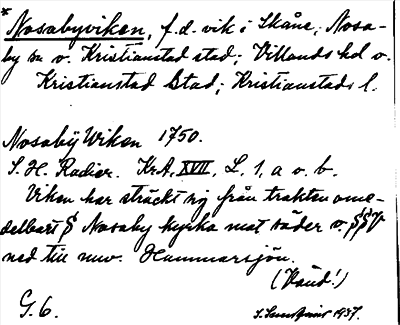 * Nosabyviken, f.d. vik i Skåne; Nosa-
by sn o. Kristianstad stad; Villands hd o.
Kristianstad Stad; Kristianstads l.
Nosabÿ Wiken 1750.
S. H. Radier. KrA, XVII, L, 1, a o. b.
Viken har sträckt sig från trakten ome-
delbart S Nosaby kyrka mot söder o. SSV
ned till nuv. Hammarsjön.
(Vänd!)
G. 6.
1937.